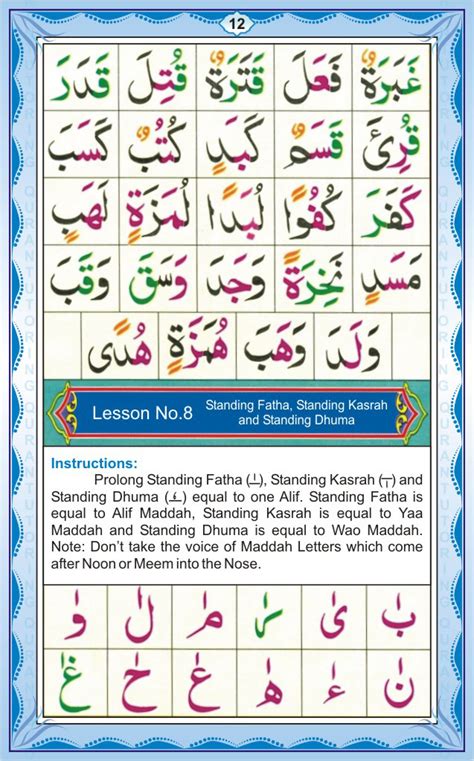 12
غَبَرَةٌ فَعَلَ قَتَرَةٌ قُتِلَ قَدَرَ
قُرِئَ قَسَمٌ كَبَدٍ كُتُبٌ كَسَبَ
كَفَرَ كُفُوًا لُبَدًا لُمَزَةٍ لَهَبٍ
مَسَدٍ نَخِرَةً وَجَدَ وَسَقَ وَقَبَ
وَلَدَ وَهَبَ هُمَزَةٍ هُدًى
Lesson No.8
Standing Fatha, Standing Kasrah
and Standing Dhuma
Instructions:
Prolong Standing Fatha (ـٰ), Standing Kasrah (ـٖ) and
Standing Dhuma (ـٗ) equal to one Alif. Standing Fatha is
equal to Alif Maddah, Standing Kasrah is equal to Yaa
Maddah and Standing Dhuma is equal to Wao Maddah.
Note: Don't take the voice of Maddah Letters which come
after Noon or Meem into the Nose.
بٰ یٰ رٰ مٰ لٰ وٰ
نٰ ءٰ هٰ عٰ حٰ غٰ
QURAN TUTORING